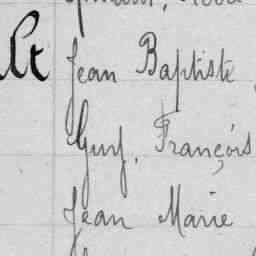 Jean Baptiste
Guy, François
Jean Marie